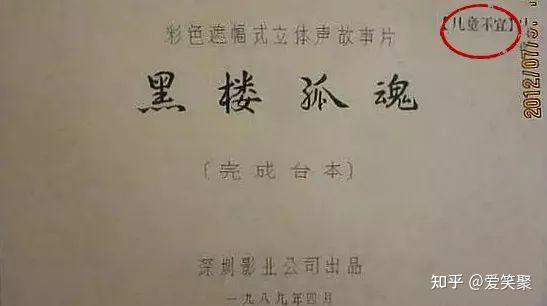 【儿童不宜】
彩色遮幅式立体声故事片
黑楼孤魂
(完成台本)
深圳影业公司出品
一九八九年四月
2012/07/
知乎 @爱笑聚